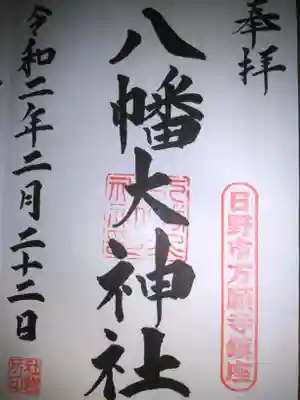 奉拝
日野市万願寺鎮座
八幡大神社
令和二年二月二十二日